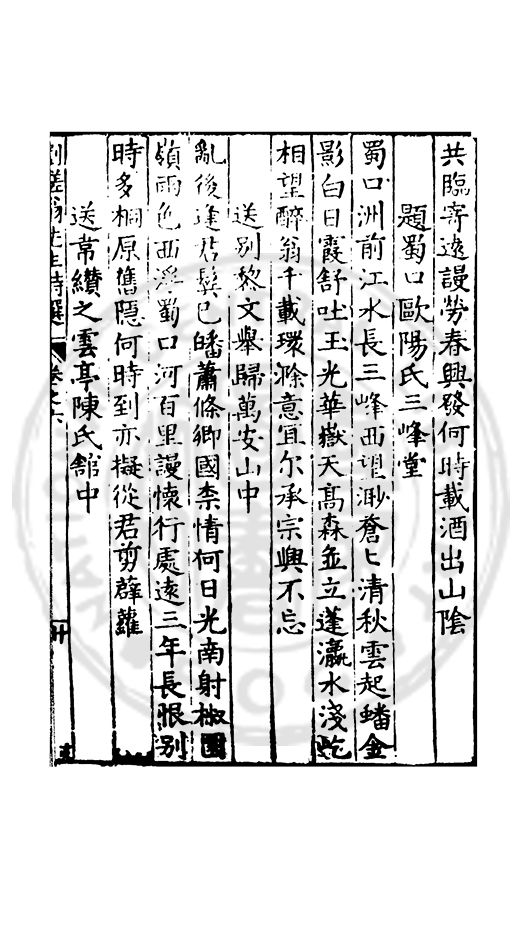 共臨寄遠謾勞春興發何時載酒出山陰
題蜀口歐陽氏三峰堂
蜀口洲前江水長三峰西望渺蒼匕清秋雲起蟠金
影白日霞舒吐玉光華嶽天髙森並立蓬瀛水淺屹
相望醉翁千載環滁意宜尔承宗興不忘
送别黎文舉歸萬安山中
亂後逢君鬢已皤蕭條鄉國柰情何日光南射椒園
嶺雨色西浮蜀口河百里謾懷行處遠三年長恨别
時多桐原舊隱何時到亦擬從君剪薜蘿
送常纘之雲亭陳氏舘中
劉槎翁先生詩選 卷之六 廿